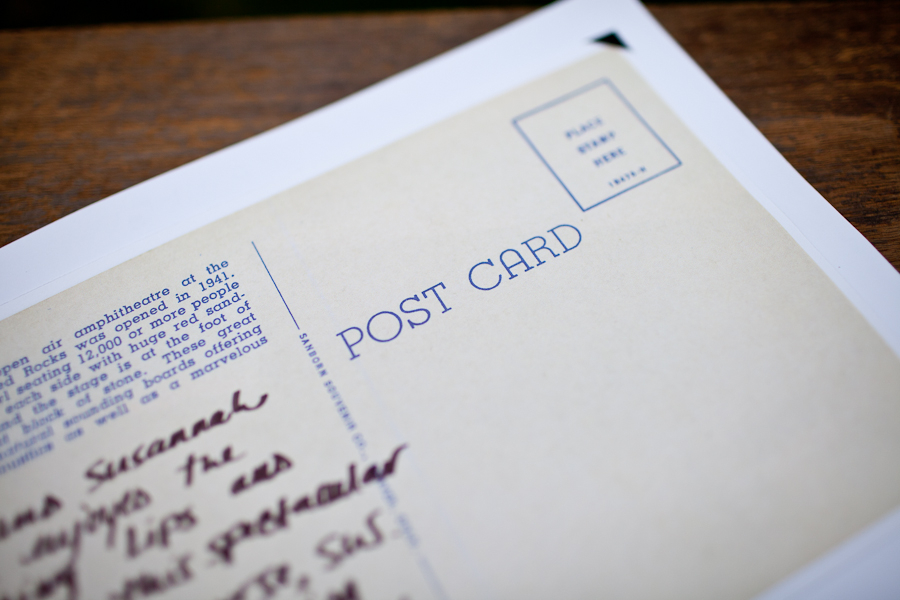 PLACE
STAMP
HERE
POST CARD
SANBORN SOUVENIR CO.
open air amphitheatre at the
Red Rocks was opened in 1941.
seating 12,000 or more people
each side with huge red sand-
and the stage is at the foot of
block of stone. These great
natural sounding boards offering
as well as a marvelous
Susannah
enjoyes the
Lips and
this spectacular
SW